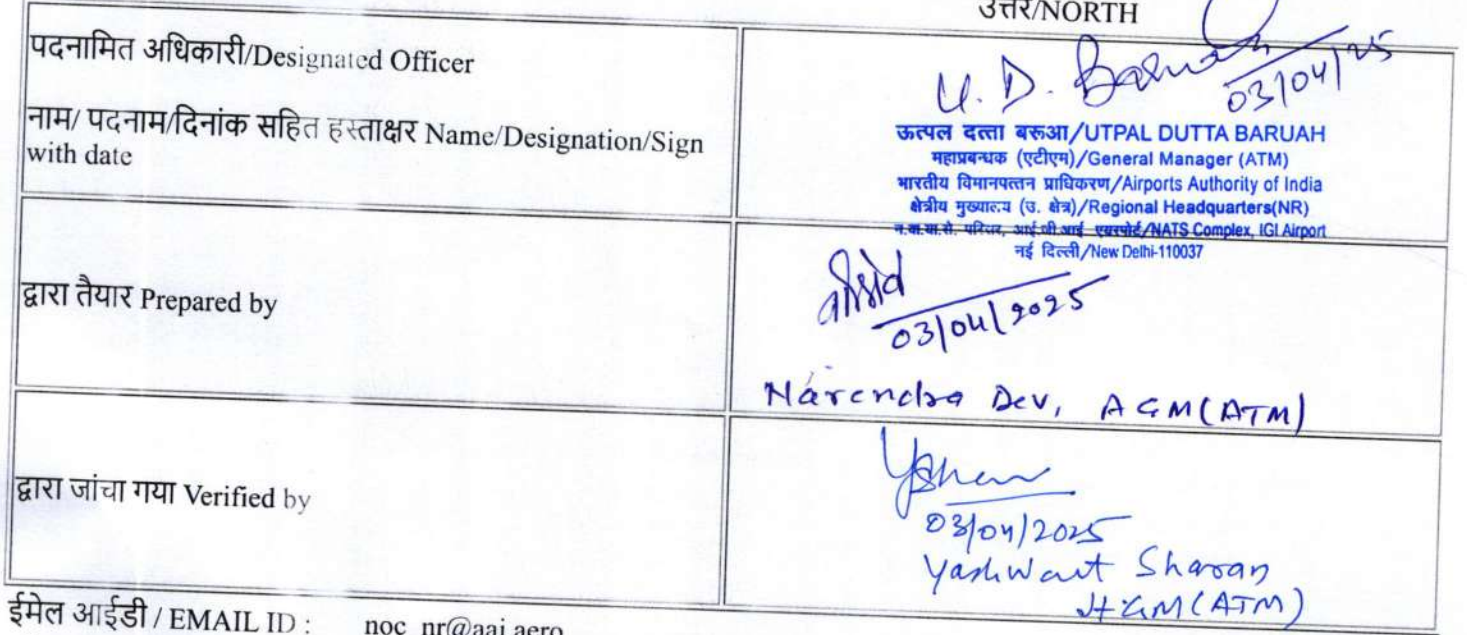 उत्तर/NORTH
पदनामित अधिकारी/Designated Officer
नाम/ पदनाम/दिनांक सहित हस्ताक्षर Name/Designation/Sign
with date
U. D. Baruah
03/04/25
ऊत्पल दत्ता बरूआ/UTPAL DUTTA BARUAH
महाप्रबन्धक (एटीएम)/General Manager (ATM)
भारतीय विमानपत्तन प्राधिकरण/Airports Authority of India
क्षेत्रीय मुख्यालय (उ. क्षेत्र)/Regional Headquarters(NR)
परिसर, आई.जी.आई एयरपोर्ट/NATS Complex, IGI Airport
नई दिल्ली/New Delhi-110037
द्वारा तैयार Prepared by
03/04/2025
Narendra Dev, AGM(ATM)
द्वारा जांचा गया Verified by
03/04/2025
Yashwant Sharan
Jt GM(ATM)
ईमेल आईडी / EMAIL ID : noc_nr@aai.aero